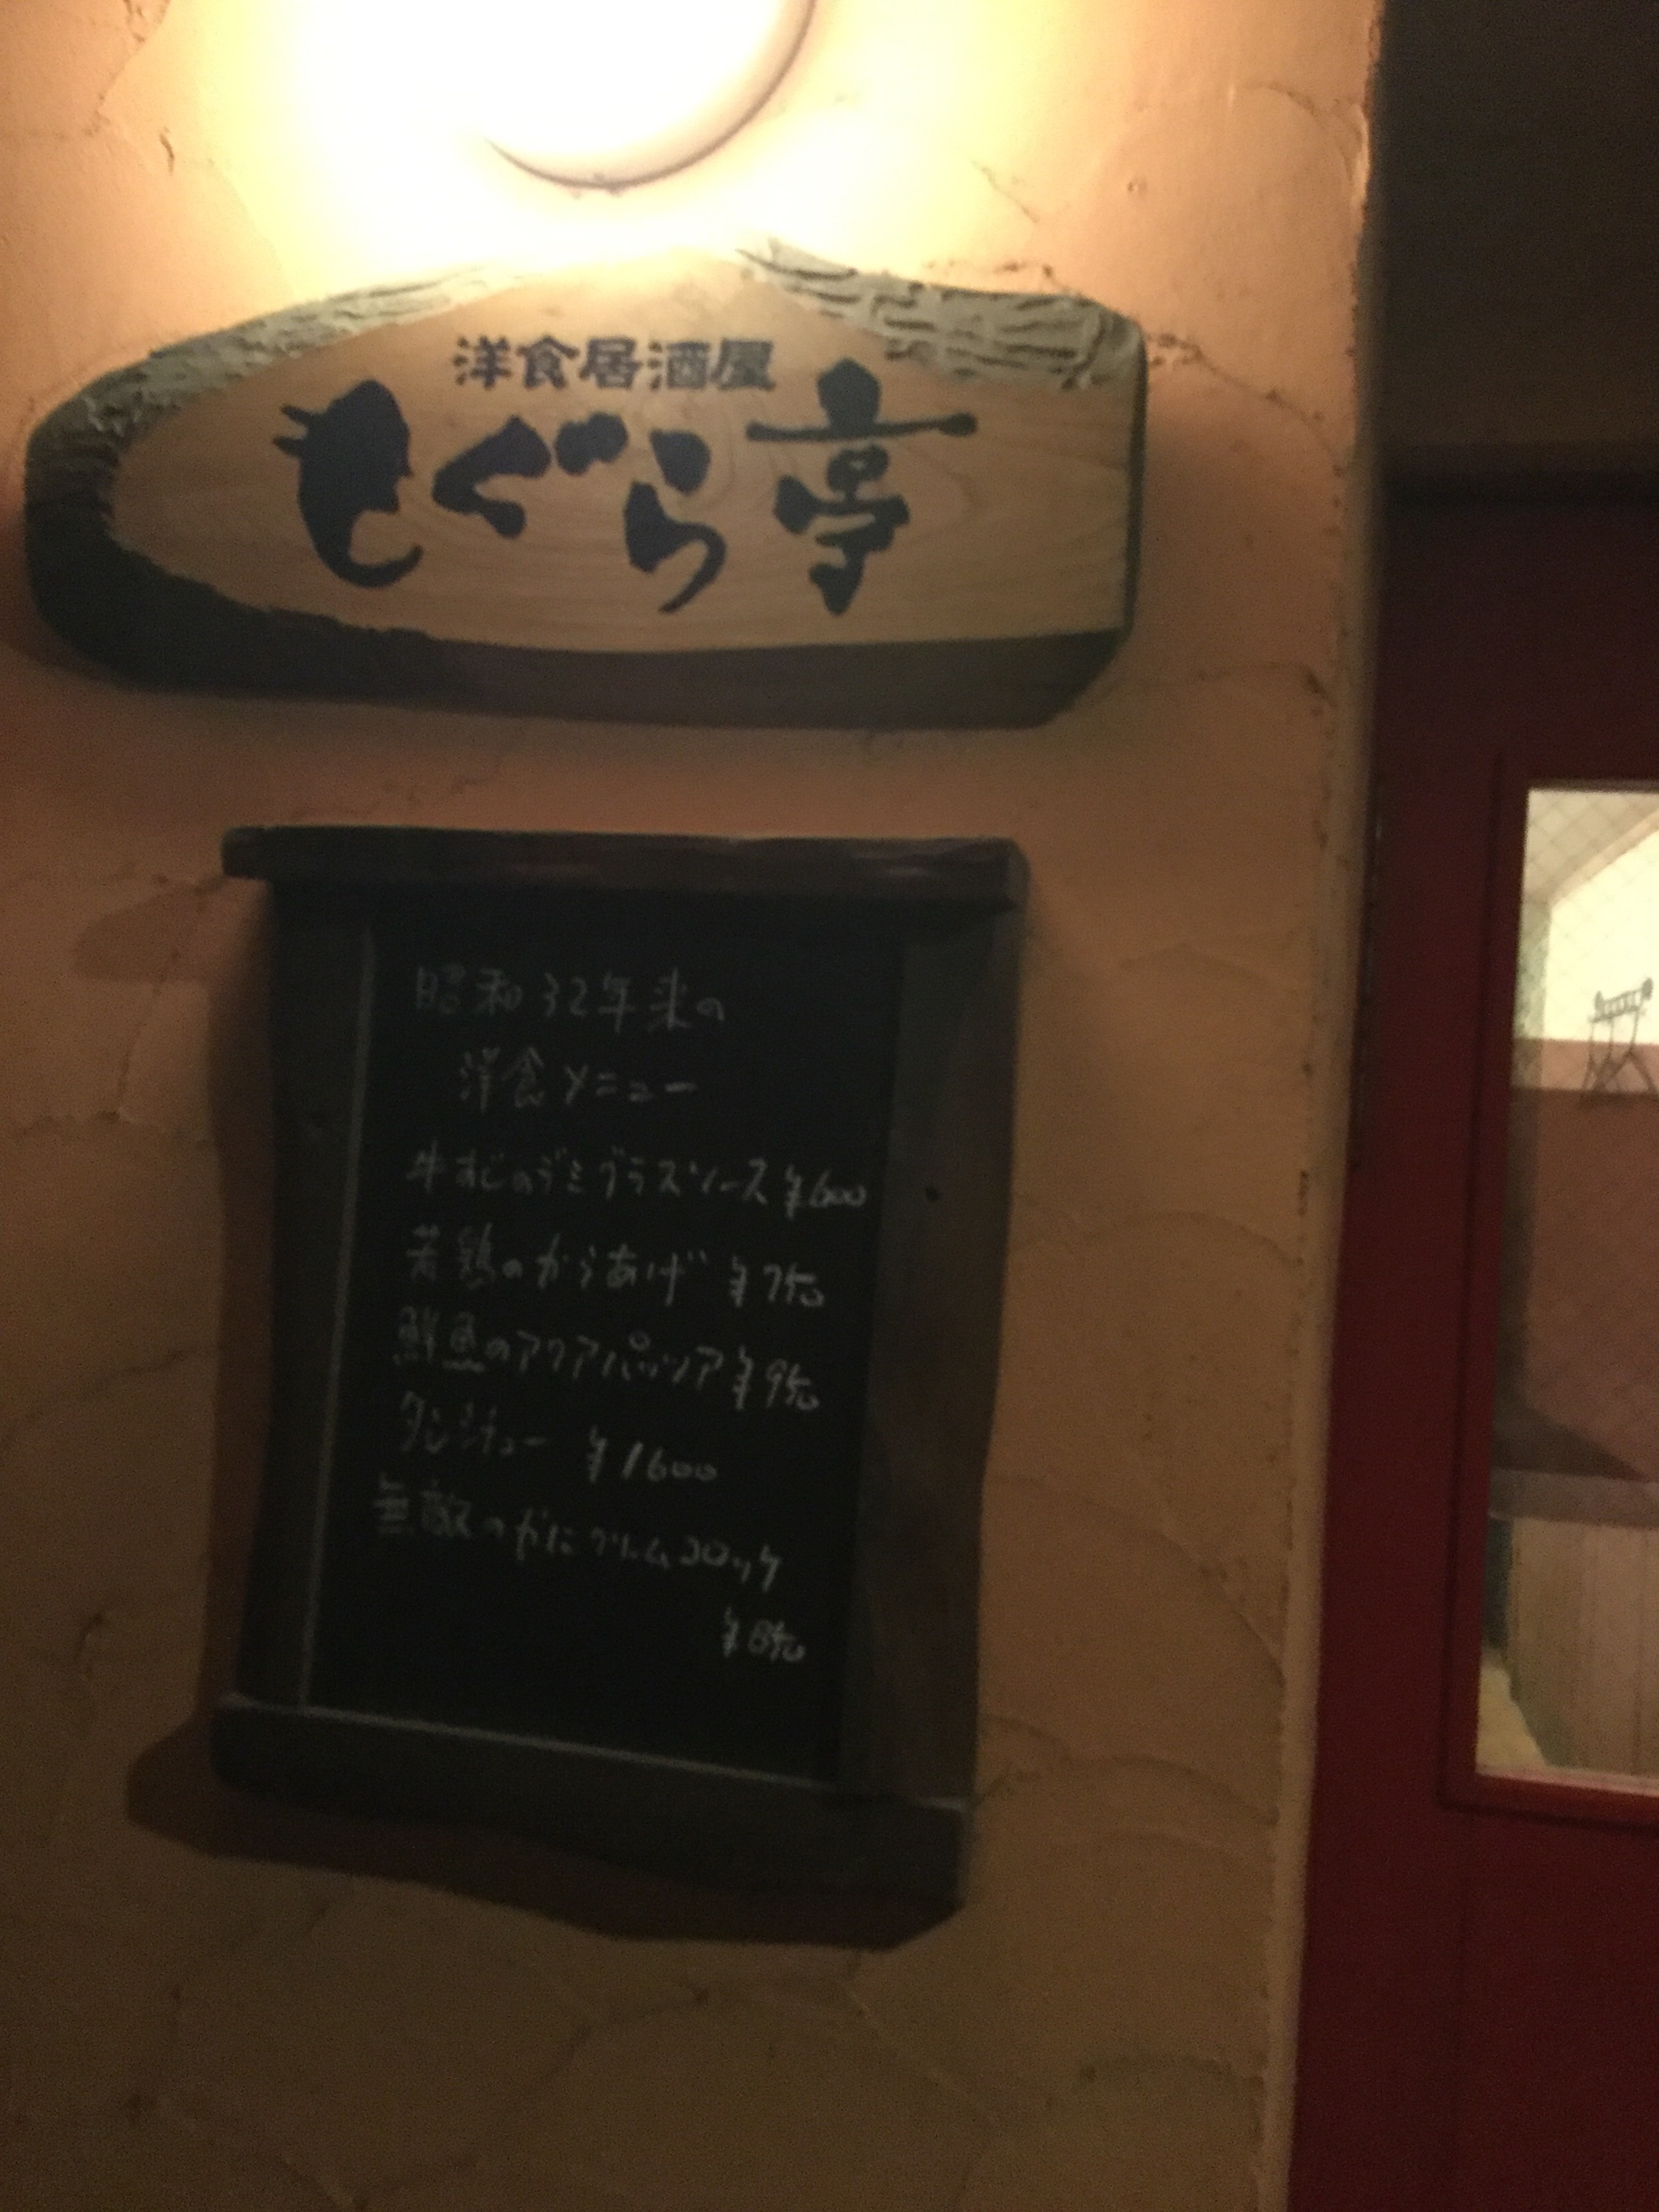 洋食居酒屋
もぐら亭
昭和32年来の
洋食メニュー
牛すじのデミグラスソース ¥600
若鶏のからあげ ¥750
鮮魚のアクアパッツア ¥950
タンシチュー ¥1600
無敵のかにクリームコロッケ
¥850